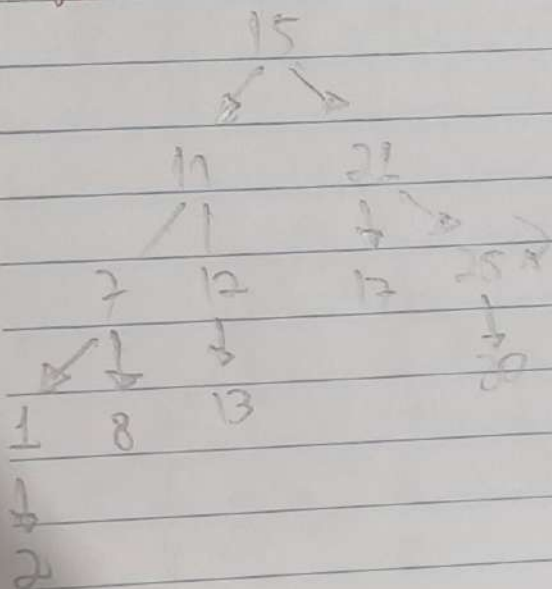 15
11 21
7 12 17 25
1 8 13
2